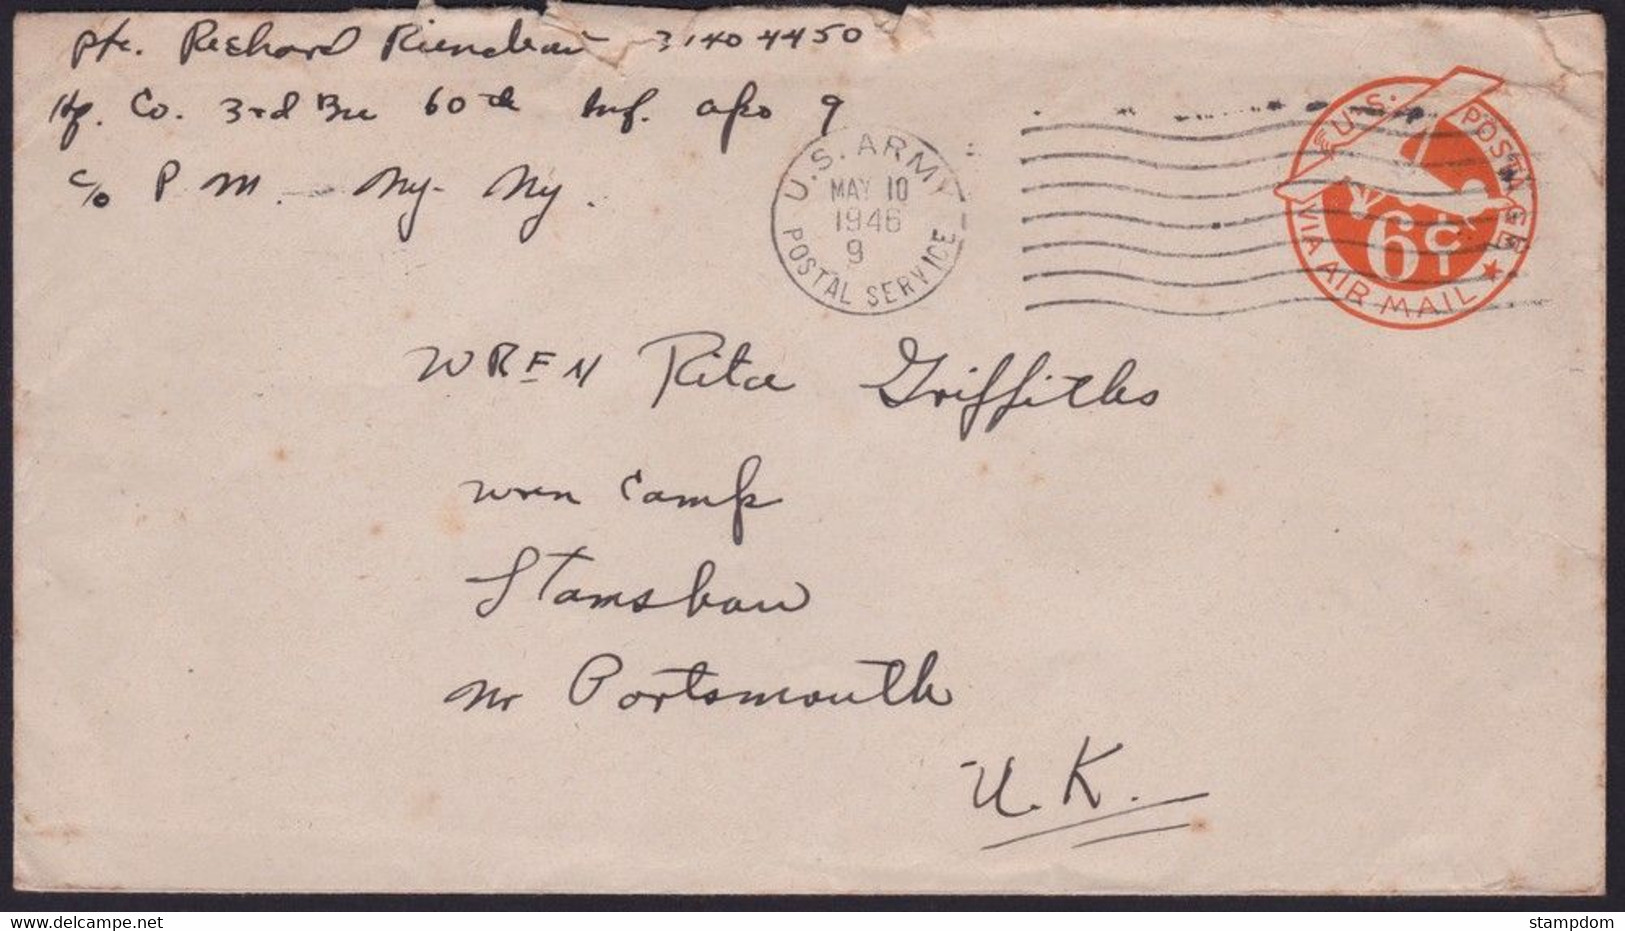 Pfc. Richard Riendeau 31404450
Hq. Co. 3rd Bn 60th Inf. apo 9
c/o P M. Ny. Ny.
U.S. ARMY
MAY 10
1946
9
POSTAL SERVICE
U.S. POSTAGE
6¢
VIA AIR MAIL
WREN Rita Griffiths
Wren Camp
Stamshaw
Nr Portsmouth
U.K.
delcampe.net
stampdom